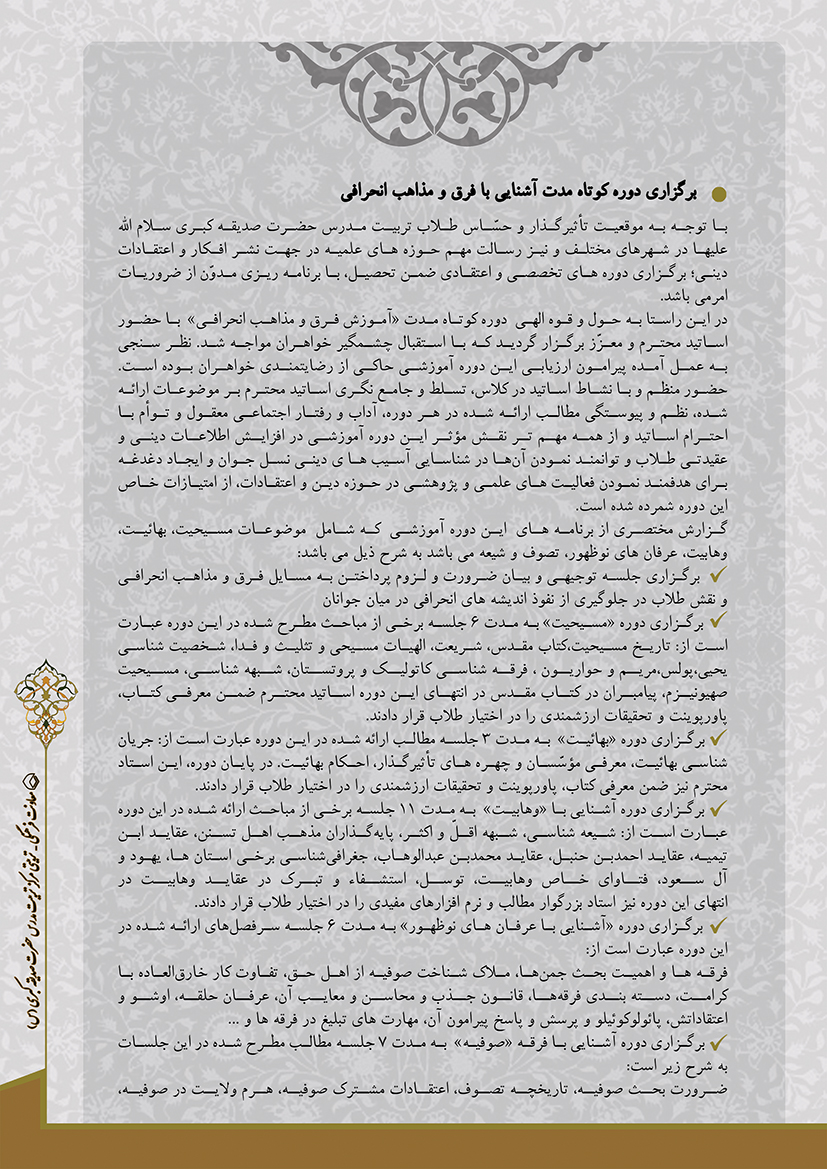 برگزاری دوره کوتاه مدت آشنایی با فرق و مذاهب انحرافی
با توجه به موقعیت تأثیرگذار و حسّاس طلاب تربیت مدرس حضرت صدیقه کبری سلام الله
علیها در شهرهای مختلف و نیز رسالت مهم حوزه های علمیه در جهت نشر افکار و اعتقادات
دینی؛ برگزاری دوره های تخصصی و اعتقادی ضمن تحصیل، با برنامه ریزی مدوّن از ضروریات
امرمی باشد.
در این راستا به حول و قوه الهی دوره کوتاه مدت «آموزش فرق و مذاهب انحرافی» با حضور
اساتید محترم و معزّز برگزار گردید که با استقبال چشمگیر خواهران مواجه شد. نظر سنجی
به عمل آمده پیرامون ارزیابی این دوره آموزشی حاکی از رضایتمندی خواهران بوده است.
حضور منظم و با نشاط اساتید در کلاس، تسلط و جامع نگری اساتید محترم بر موضوعات ارائه
شده، نظم و پیوستگی مطالب ارائه شده در هر دوره، آداب و رفتار اجتماعی معقول و توأم با
احترام اساتید و از همه مهم تر نقش مؤثر این دوره آموزشی در افزایش اطلاعات دینی و
عقیدتی طلاب و توانمند نمودن آن‌ها در شناسایی آسیب ها ی دینی نسل جوان و ایجاد دغدغه
برای هدفمند نمودن فعالیت های علمی و پژوهشی در حوزه دین و اعتقادات، از امتیازات خاص
این دوره شمرده شده است.
گزارش مختصری از برنامه های این دوره آموزشی که شامل موضوعات مسیحیت، بهائیت،
وهابیت، عرفان های نوظهور، تصوف و شیعه می باشد به شرح ذیل می باشد:
✓ برگزاری جلسه توجیهی و بیان ضرورت و لزوم پرداختن به مسایل فرق و مذاهب انحرافی
و نقش طلاب در جلوگیری از نفوذ اندیشه های انحرافی در میان جوانان
✓ برگزاری دوره «مسیحیت» به مدت ۶ جلسه برخی از مباحث مطرح شده در این دوره عبارت
است از: تاریخ مسیحیت،کتاب مقدس، شریعت، الهیات مسیحی و تثلیث و فدا، شخصیت شناسی
یحیی،پولس،مریم و حواریون ، فرقه شناسی کاتولیک و پروتستان، شبهه شناسی، مسیحیت
صهیونیزم، پیامبران در کتاب مقدس در انتهای این دوره اساتید محترم ضمن معرفی کتاب،
پاورپوینت و تحقیقات ارزشمندی را در اختیار طلاب قرار دادند.
✓ برگزاری دوره «بهائیت» به مدت ۳ جلسه مطالب ارائه شده در این دوره عبارت است از: جریان
شناسی بهائیت، معرفی مؤسّسان و چهره های تأثیرگذار، احکام بهائیت. در پایان دوره، این استاد
محترم نیز ضمن معرفی کتاب، پاورپوینت و تحقیقات ارزشمندی را در اختیار طلاب قرار دادند.
✓ برگزاری دوره آشنایی با «وهابیت» به مدت ۱۱ جلسه برخی از مباحث ارائه شده در این دوره
عبارت است از: شیعه شناسی، شبهه اقلّ و اکثر، پایه‌گذاران مذهب اهل تسنن، عقاید ابن
تیمیه، عقاید احمدبن حنبل، عقاید محمدبن عبدالوهاب، جغرافی‌شناسی برخی استان ها، یهود و
آل سعود، فتاوای خاص وهابیت، توسل، استشفاء و تبرک در عقاید وهابیت در
انتهای این دوره نیز استاد بزرگوار مطالب و نرم افزارهای مفیدی را در اختیار طلاب قرار دادند.
✓ برگزاری دوره «آشنایی با عرفان های نوظهور» به مدت ۶ جلسه سرفصل‌های ارائه شده در
این دوره عبارت است از:
فرقه ها و اهمیت بحث جمن‌ها، ملاک شناخت صوفیه از اهل حق، تفاوت کار خارق‌العاده با
کرامت، دسته بندی فرقه‌ها، قانون جذب و محاسن و معایب آن، عرفان حلقه، اوشو و
اعتقاداتش، پائولوکوئیلو و پرسش و پاسخ پیرامون آن، مهارت های تبلیغ در فرقه ها و ...
✓ برگزاری دوره آشنایی با فرقه «صوفیه» به مدت ۷ جلسه مطالب مطرح شده در این جلسات
به شرح زیر است:
ضرورت بحث صوفیه، تاریخچه تصوف، اعتقادات مشترک صوفیه، هرم ولایت در صوفیه،
معاونت فرهنگی - تربیتی مرکز تربیت مدرس حضرت صدیقه کبری (س)